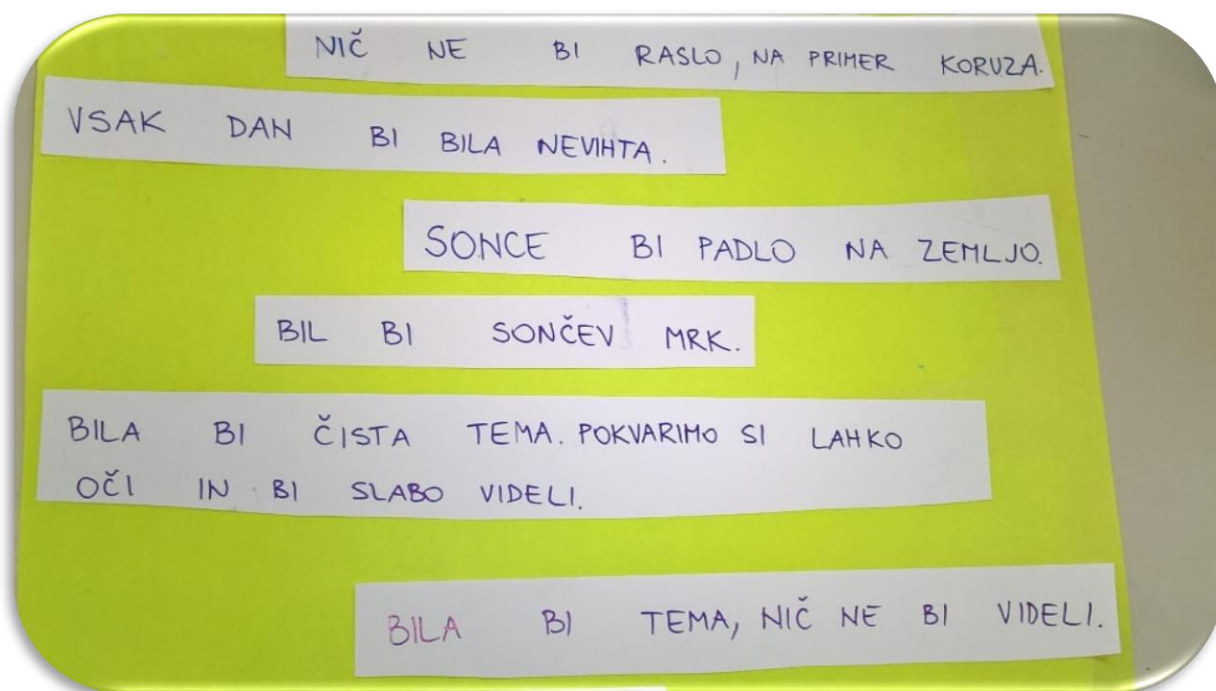 NIČ NE BI RASLO, NA PRIMER KORUZA.
VSAK DAN BI BILA NEVIHTA.
SONCE BI PADLO NA ZEMLJO.
BIL BI SONČEV MRK.
BILA BI ČISTA TEMA. POKVARIMO SI LAHKO
OČI IN BI SLABO VIDELI.
BILA BI TEMA, NIČ NE BI VIDELI.